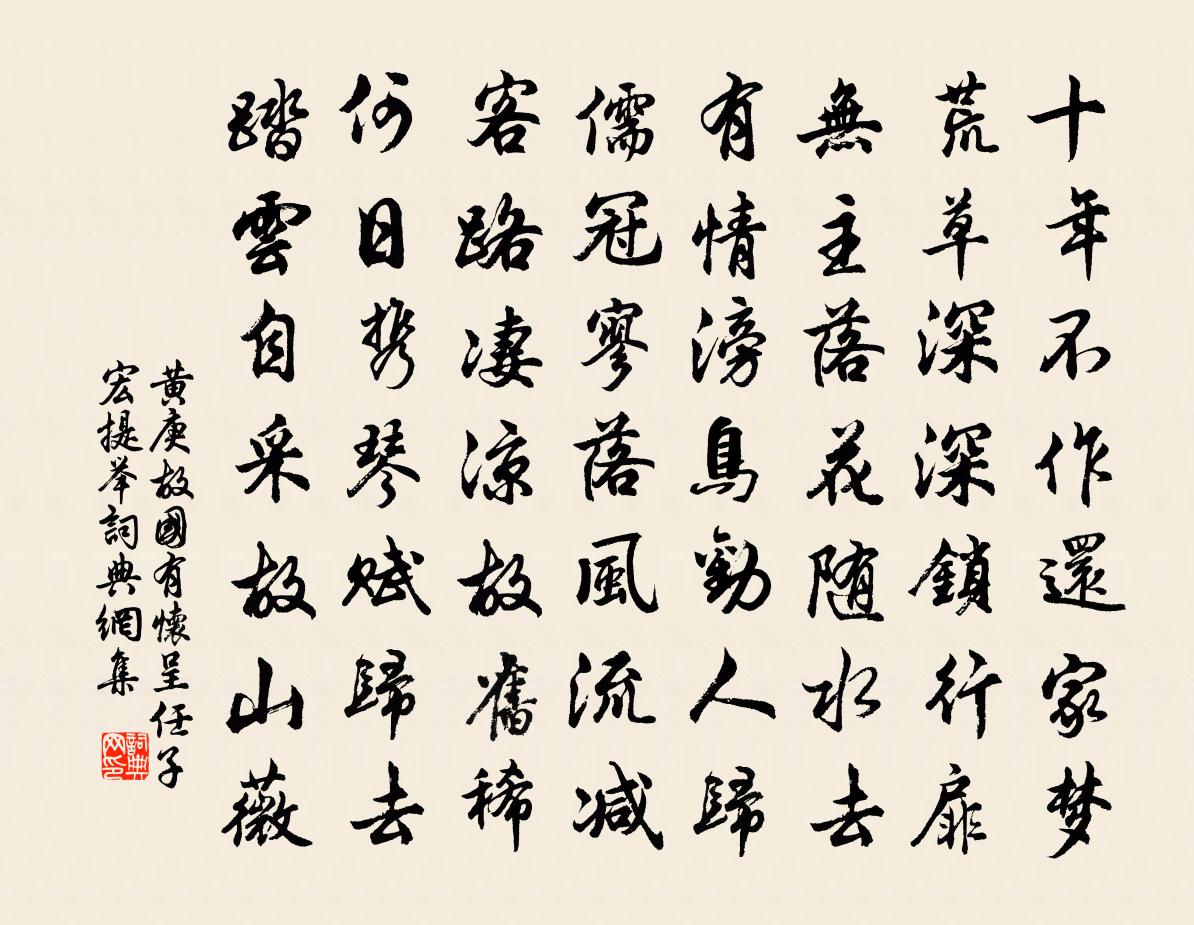 十年不作還家梦
荒草深深鎖行扉
無主落花随水去
有情滂鳥勸人歸
儒冠寥落風流减
客路凄凉故舊稀
何日携琴賦歸去
踏雲自采故山薇
黄庚故國有懷呈任子
宏提举詞典網集
詞典网印